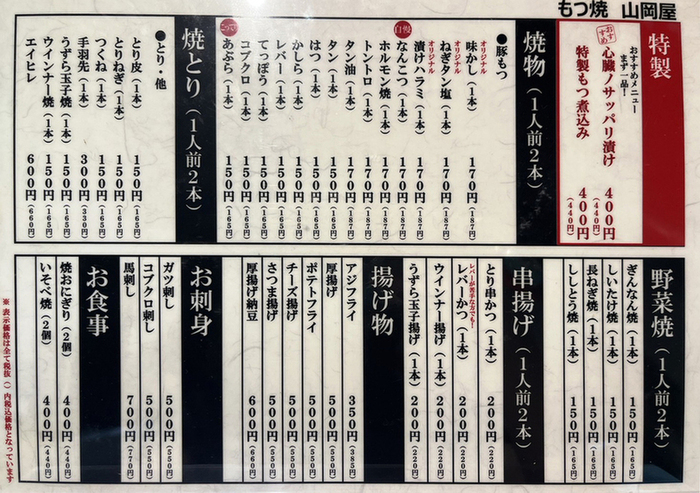 もつ焼 山岡屋
特製
おすすめメニュー
まず一品！
おすすめ
心臓ノサッパリ漬け 400円(440円)
特製もつ煮込み 400円(440円)
焼物(1人前2本)
●豚もつ
オリジナル
味かし(1本) 170円(187円)
オリジナル
ねぎタン塩(1本) 170円(187円)
オリジナル
漬けハラミ(1本) 170円(187円)
自慢
なんこつ(1本) 170円(187円)
ホルモン焼(1本) 170円(187円)
トントロ(1本) 170円(187円)
タン油(1本) 170円(187円)
タン(1本) 150円(165円)
はつ(1本) 150円(165円)
かしら(1本) 150円(165円)
レバー(1本) 150円(165円)
てっぽう(1本) 150円(165円)
コブクロ(1本) 150円(165円)
あぶら(1本) 150円(165円)
焼とり(1人前2本)
●とり・他
とり皮(1本) 150円(165円)
とりねぎ(1本) 150円(165円)
つくね(1本) 150円(165円)
手羽先(1本) 300円(330円)
うずら玉子焼(1本) 150円(165円)
ウインナー焼(1本) 150円(165円)
エイヒレ 600円(660円)
野菜焼(1人前2本)
ぎんなん焼(1本) 150円(165円)
しいたけ焼(1本) 150円(165円)
長ねぎ焼(1本) 150円(165円)
ししとう焼(1本) 150円(165円)
串揚げ(1人前2本)
とり串かつ(1本) 200円(220円)
レバーが苦手な方でも！
レバーかつ(1本) 200円(220円)
ウインナー揚げ(1本) 200円(220円)
うずら玉子揚げ(1本) 200円(220円)
揚げ物
アジフライ 350円(385円)
厚揚げ 500円(550円)
ポテトフライ 500円(550円)
チーズ揚げ 500円(550円)
さつま揚げ 500円(550円)
厚揚げ納豆 600円(660円)
お刺身
ガツ刺し 500円(550円)
コブクロ刺し 500円(550円)
馬刺し 700円(770円)
お食事
焼おにぎり(2個) 400円(440円)
いそべ焼(2個) 400円(440円)
※表示価格は全て税抜()内税込価格となっています